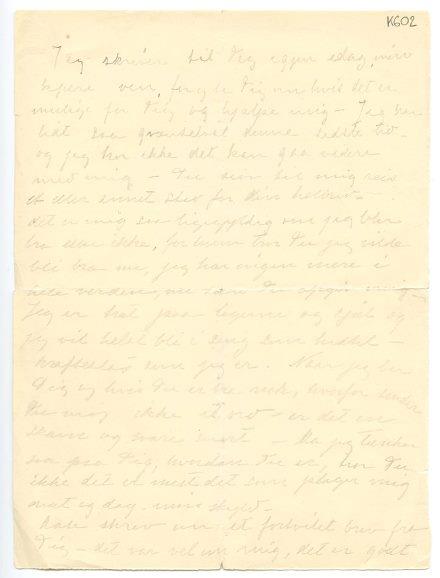 K602
Jeg skriver til Dig igjen idag, min
kjære ven, for at be Dig om hvis det er
mulig for Dig og hjælpe mig – Jeg har
lidt saa grændseløst denne sidste tid –
og jeg tror ikke det kan gaa videre
med mig – Du sier til mig reis
et eller annet sted for Din helbred –
det er mig saa ligegyldig om jeg blir
bra eller ikke, for hvem tror Du jeg vilde
bli bra nu, jeg har ingen mere i
hele verden, nu som Du opgir mig –
Jeg er træt paa legeme og sjæl og
jeg vil helst bli i seng som
kraftesløs som jeg er. Naar jeg ber
Dig og hvis Du er bra nok, hvorfor sender
Du mig ikke et ord – er det en
skam og svare mig – Da jeg tænker
saa paa Dig, hvordan Du er, tror Du
ikke det er mest det som plager mig
nat og dag – min skyld –
skrev om et fortvilet brev fra
Dig – det var vel om mig, det er godt